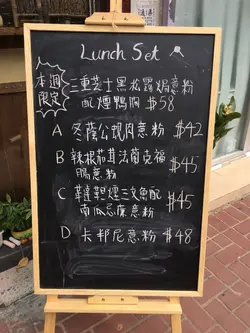 Lunch Set
本週
限定
三重芝士黑松露焗意粉
配煙鴨胸 $58
A 冬蔭公豬肉意粉 $42
B 辣根茄茸法蘭克福 $45
腸意粉
C 韃靼煙三文魚配 $45
南瓜忌廉意粉
D 卡邦尼意粉 $48